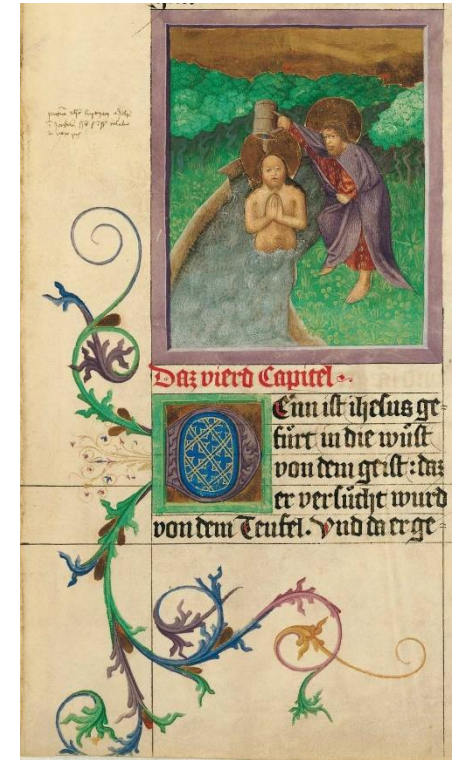 Daz vierd Capitel
Denn ist ihesus ge-
fürt in die wüst
von dem geist: daz
er versücht wurd
von dem Teufel. Vnd da er ge-